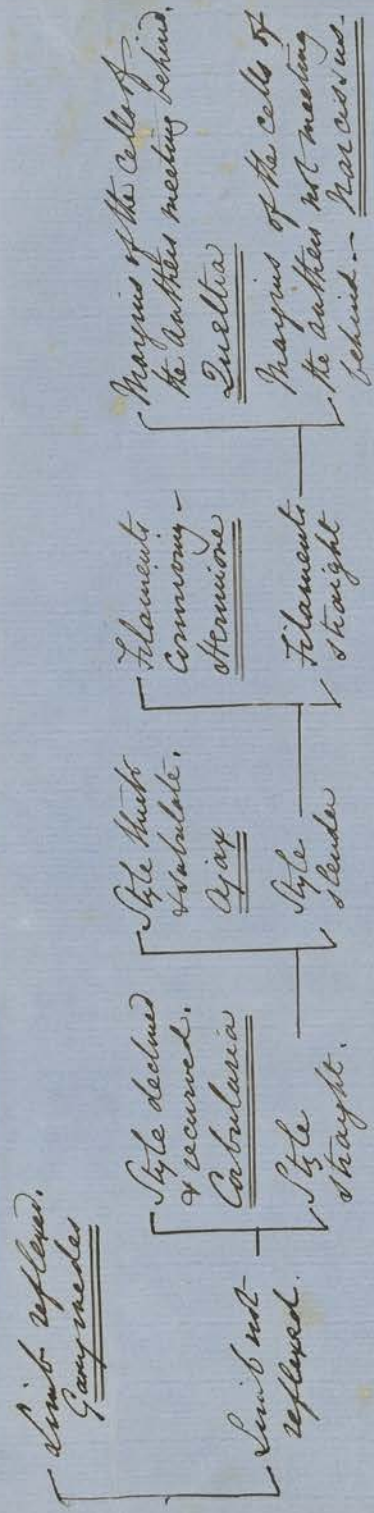 Limb reflexed.
Ganymedes
Limb not
reflexed.
Style declined
& recurved.
Corbularia
Style
straight.
Style thick
& subulate.
Ajax
Style
slender
Filaments
Conniving -
Hermione
Filaments
straight
Margins of the cells of
the anthers meeting behind.
Queltia
Margins of the cells of
the anthers not meeting
behind. - Narcissus -